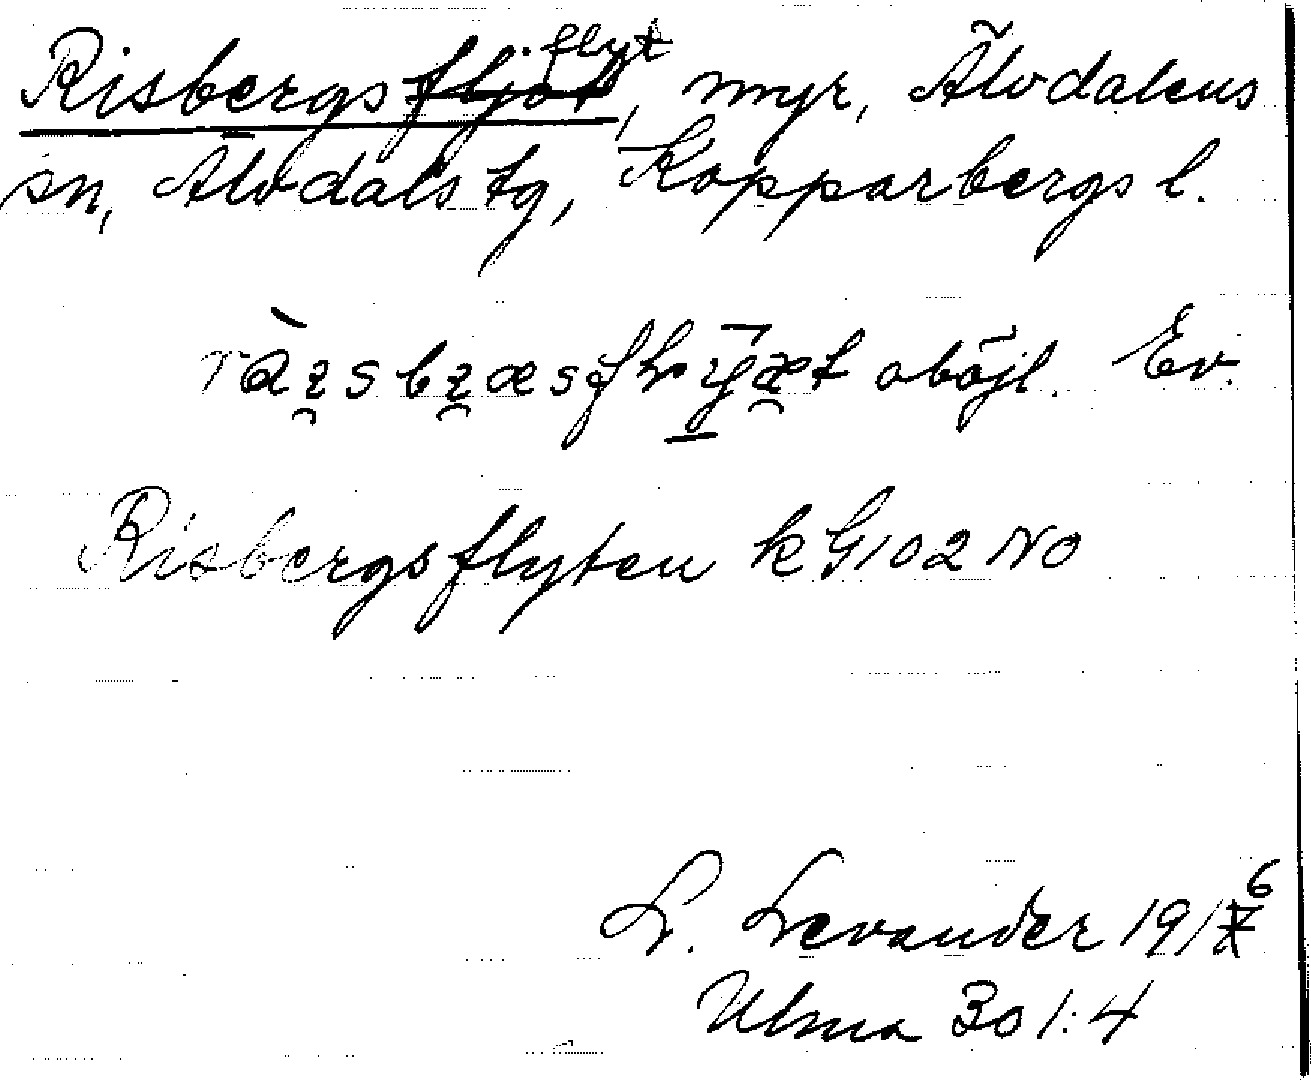 Risbergsflyt, myr, Älvdalens
sn, Älvdals tg, Kopparbergs l.
oböjl. Ev.
Risbergsflyten k G102 NO
L. Levander 191 6
Ulma 301:4